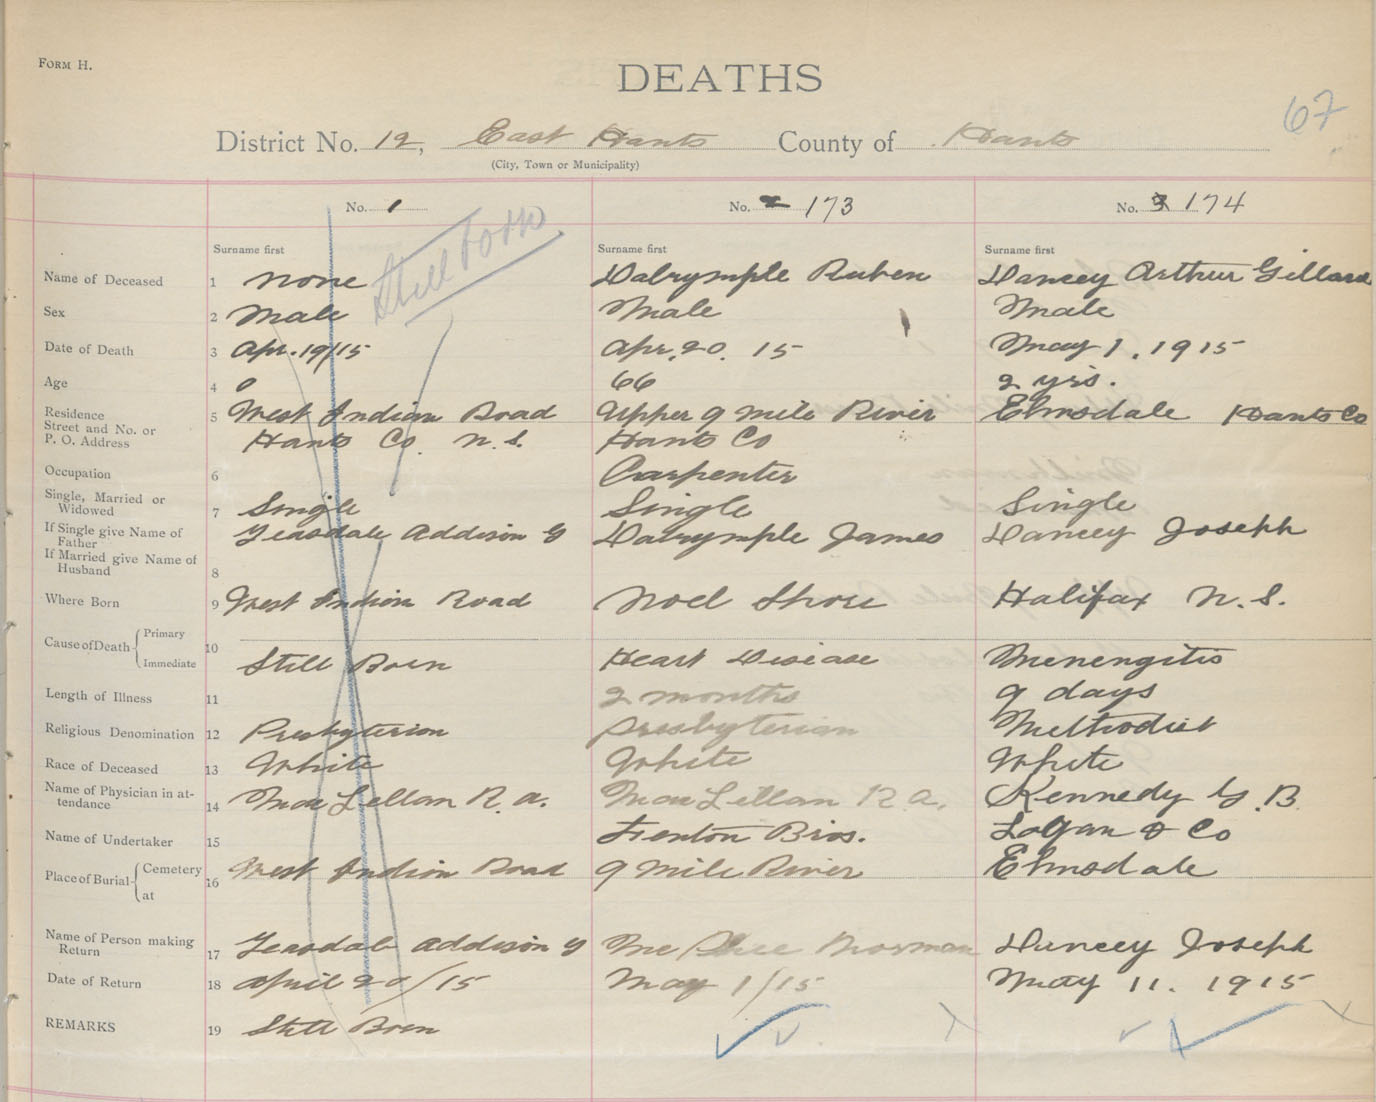 FORM H.
DEATHS
67
District No. 12, East Hants County of Hants
(City, Town or Municipality)
No. 1
No. 2 173
No. 3 174
Still Born
Surname first
Surname first
Surname first
Name of Deceased 1 None Dalrymple Ruben Dancey Arthur Gillard
Sex 2 Male Male Male
Date of Death 3 Apr. 19/15 Apr. 20. 15 May 1. 1915
Age 4 0 66 2 yrs.
Residence 5 West Indian Road Upper 9 Mile River Elmsdale Hants Co
Street and No. or
P. O. Address Hants Co. N. S. Hants Co
Occupation 6 Carpenter
Single, Married or
Widowed 7 Single Single Single
If Single give Name of
Father Teasdale Addison G Dalrymple James Dancey Joseph
If Married give Name of
Husband 8
Where Born 9 West Indian Road Noel Shore Halifax N. S.
Cause of Death Primary 10
Immediate Still Born Heart Disease Menengitis
Length of Illness 11 2 months 9 days
Religious Denomination 12 Presbyterian Presbyterian Methodist
Race of Deceased 13 White White White
Name of Physician in at-
tendance 14 MacLellan R. A. MacLellan R A. Kennedy G. B.
Name of Undertaker 15 Fenton Bros. Logan & Co
Place of Burial Cemetery 16 West Indian Road 9 Mile River Elmsdale
at
Name of Person making
Return 17 Teasdale Addison G Mc Norman Dancey Joseph
Date of Return 18 April 20/15 May 1/15 May 11. 1915
REMARKS 19 Still Born